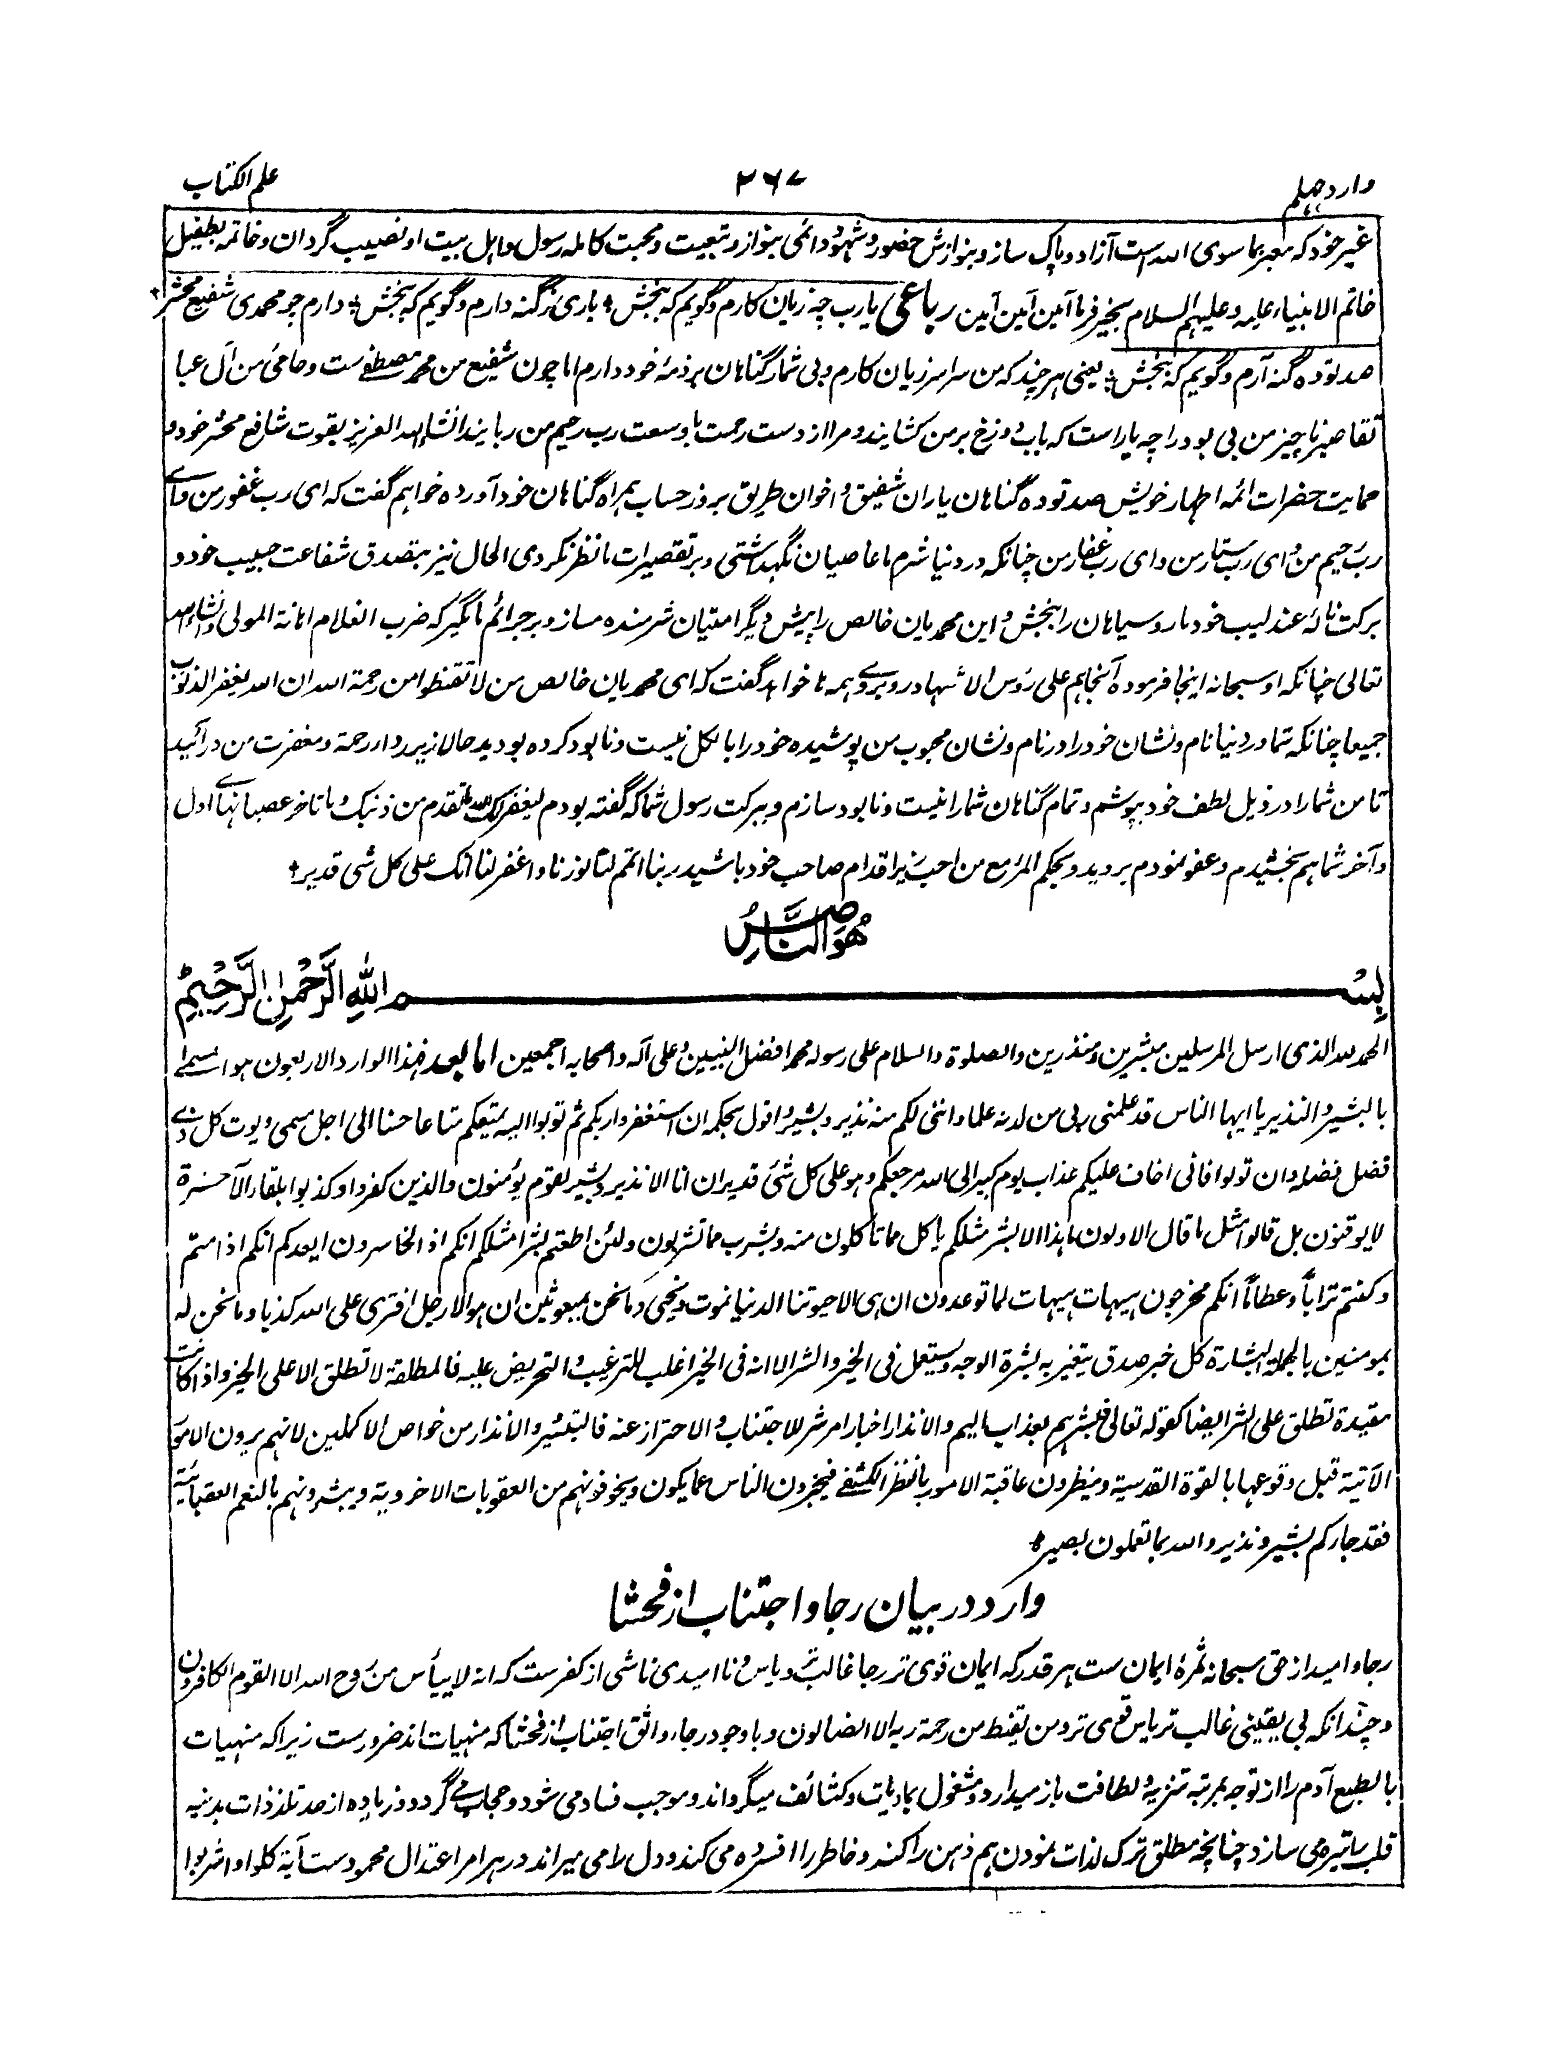 وارد چهلم
۲۶۷
علم الکتاب
غیر خود که معبر بما سوی الله است آزاد و پاک ساز و بنوازش حضور و شهود دائمی بنواز و تبعیت و محبت کامله رسول و اهل بیت او نصیب گردان و خاتمه بطفیل
خاتم الانبیاء علیه و علیهم السلام بخیر فرما آمین آمین آمین رباعی یا رب چه زیان کارم و گویم که ببخش ٭ باری ز گنه دارم و گویم که ببخش ٭ دارم چو محمدی شفیع محشر ٭
صد توده گنه آرم و گویم که ببخش ٭ یعنی هر چند که من سراسر زیان کارم و بی شمار گناهان بر ذمهٔ خود دارم اما چون شفیع من محمد مصطفی ست و حامی من آل عبا
تقاصیر ناچیز من بی بود را چه یاراست که باب دوزخ بر من کشایند و مرا از دست رحمت با وسعت رب رحیم من ربایند انشاء الله العزیز بقوت شافع محشر خود و
حمایت حضرات ائمه اطهار خویش صد توده گناهان یاران شفیق و اخوان طریق بروز حساب همراه گناهان خود آورده خواهم گفت که ای رب غفور من و ای
رب رحیم من و ای رب ستار من و ای رب غفار من چنانکه در دنیا شرم ما عاصیان نگهداشتی و بر تقصیرات ما نظر نکردی الحال نیز بتصدق شفاعت حبیب خود و
برکت نالهٔ عندلیب خود ما روسیاهان را ببخش و این محمدیان خالص را پیش دیگر امتیان شرمنده مساز و بر جرائم ما مگیر که ضرب الغلام اهانة المولی و انشاء الله
تعالی چنانکه او سبحانه اینجا فرموده آنجا هم علی رؤس الاشهاد روبروے همه ها خواهد گفت که ای محمدیان خالص من لا تقنطوا من رحمة الله ان الله یغفر الذنوب
جمیعا چنانکه شما در دنیا نام و نشان خود را در نام و نشان محبوب من پوشیده خود را بالکل نیست و نابود کرده بودید حالا زیر ردای رحمة و مغفرت من در آئید
تا من شما را در ذیل لطف خود بپوشم و تمام گناهان شما را نیست و نابود سازم و ببرکت رسول شما که گفته بودم لیغفر لک الله ما تقدم من ذنبک و ما تاخر عصیانهاے اول
و آخر شما هم بخشیدم و عفو نمودم بروید و بحکم المرء مع من احب زیر اقدام صاحب خود باشید ربنا اتمم لنا نورنا و اغفر لنا انک علی کل شی قدیر ٭
هُوَ النَّاصِرُ
بِسْمِ اللهِ الرَّحْمٰنِ الرَّحِیْمِ
الحمد لله الذی ارسل المرسلین مبشرین و منذرین والصلوة والسلام علی رسوله محمد افضل النبیین و علی آله و اصحابه اجمعین اما بعد فهذا الوارد الاربعون هو المسمے
بالبشیر و النذیر یا ایها الناس قد علمنی ربی من لدنه علما و اننی لکم منه نذیر و بشیر و اقول بحکمه ان استغفروا ربکم ثم توبوا الیه یمتعکم متاعا حسنا الی اجل مسمی و یوت کل ذے
فضل فضله و ان تولوا فانی اخاف علیکم عذاب یوم کبیر الی الله مرجعکم و هو علی کل شئ قدیر ان انا الا نذیر و بشیر لقوم یؤمنون والذین کفروا و کذبوا بلقاء الآخرة
لا یوقنون بل قالوا مثل ما قال الاولون ما هذا الا بشر مثلکم یاکل مما تاکلون منه و یشرب مما تشربون و لئن اطعتم بشرا مثلکم انکم اذا لخاسرون ایعدکم انکم اذا متم
و کنتم ترابا و عظاما انکم مخرجون هیهات هیهات لما توعدون ان هی الا حیوتنا الدنیا نموت و نحیی و ما نحن بمبعوثین ان هو الا رجل افتری علی الله کذبا و ما نحن له
بمومنین بالجملة البشارة کل خبر صدق یتغیر به بشرة الوجه و یستعمل فی الخیر والشر الا انه فی الخیر اغلب للترغیب و التحریض علیه فالمطلقة لا تطلق الا علی الخیر و اذا کانت
مقیدة تطلق علی الشر ایضا کقوله تعالی فبشرهم بعذاب الیم والانذار اخبار امر شر للاجتناب والاحتراز عنه فالتبشیر والانذار من خواص الاکملین لانهم یرون الامور
الآتیة قبل وقوعها بالقوة القدسیة و ینظرون عاقبة الامور بالنظر الکشفے فیخبرون الناس عما یکون و یخوفونهم من العقوبات الاخرویة و یبشرونهم بالنعم العقبائیة
فقد جاءکم بشیر و نذیر والله بما تعملون بصیر ٭
وارد در بیان رجا و اجتناب از فحشا
رجا و امید از حق سبحانه ثمرهٔ ایمان ست هر قدر که ایمان قوی تر رجا غالب تر و یاس و نا امیدی ناشی از کفر ست که انه لا ییأس من روح الله الا القوم الکافرون
و چندانکه بی یقینی غالب تر یاس قوی تر و من یقنط من رحمة ربه الا الضالون و با وجود رجاء واثق اجتناب از فحشا که منهیات اند ضرور ست زیرا که منهیات
بالطبع آدم را از توجه بمرتبه تنزیه و لطافت باز میدارد و مشغول بمادیات و کثائف میگرداند و موجب فساد می شود و حجاب مے گردد و زیاده از حد تلذذات بدنیه
قلب را تیره می سازد چنانچه مطلق ترک لذات نمودن هم ذهن را کند و خاطر را افسرده می کند و دل را می میراند در هر امر اعتدال محمود ست آیهٔ کلوا و اشربوا